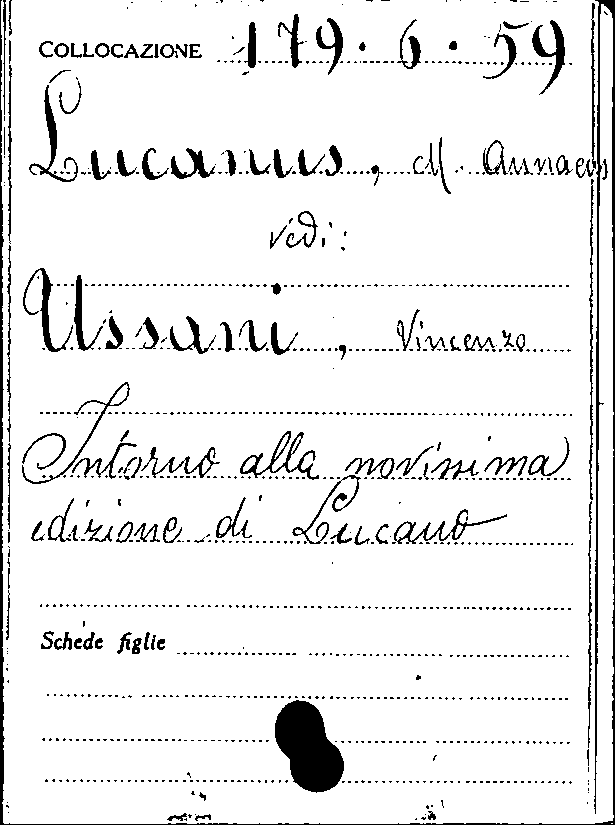 COLLOCAZIONE 179. 6. 59
Lucanus, M. Annaeus
vedi:
Ussani, Vincenzo
Intorno alla novissima
edizione di Lucano
Schede figlie